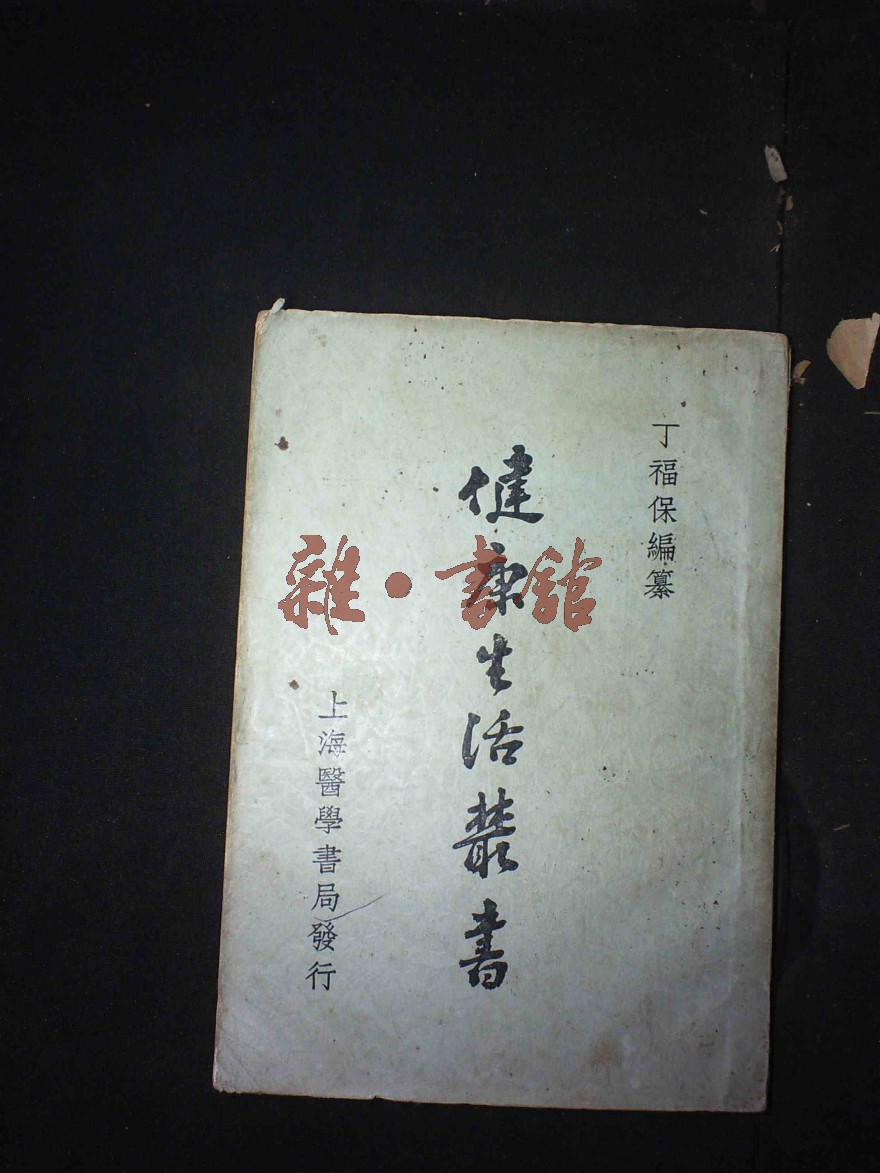 丁福保編纂
健康生活叢書
上海醫學書局發行
雜·書館